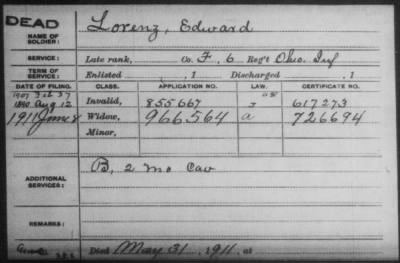 DEAD
NAME OF SOLDIER: Lorenz, Edward
SERVICE: Late rank, Co. F, 6 Reg't Ohio Inf
TERM OF SERVICE: Enlisted , 1 Discharged , 1
DATE OF FILING. CLASS. APPLICATION NO. LAW. CERTIFICATE NO.
1907 Feb 27
1890 Aug 12 Invalid, 855667 J 617273
1911 June 8 Widow, 966564 a 726694
Minor,
ADDITIONAL SERVICES: B, 2 Mo Cav
REMARKS:
Died May 31, 1911, at